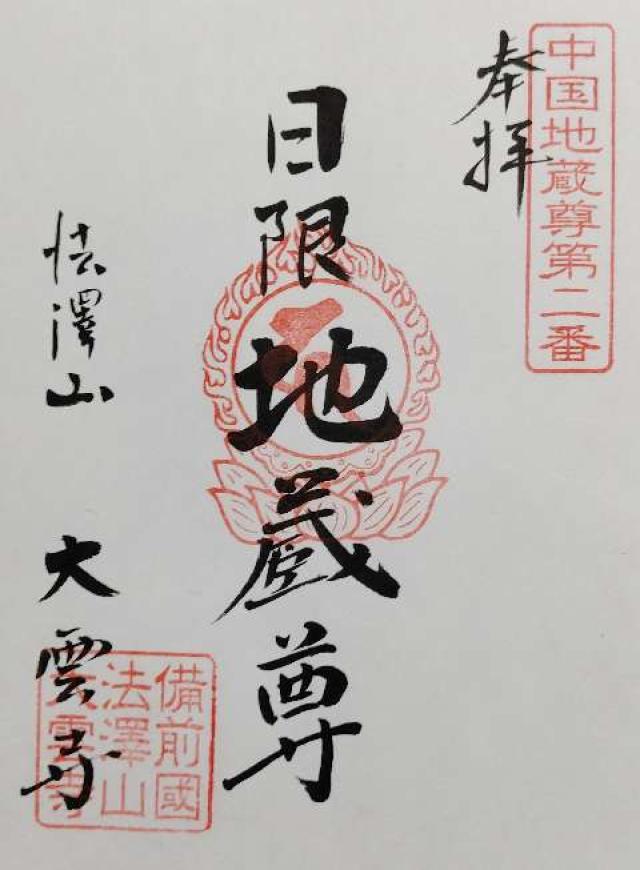 中国地蔵尊第二番
奉拝
日限地蔵尊
法澤山 大雲寺
備前國
法澤山
大雲寺